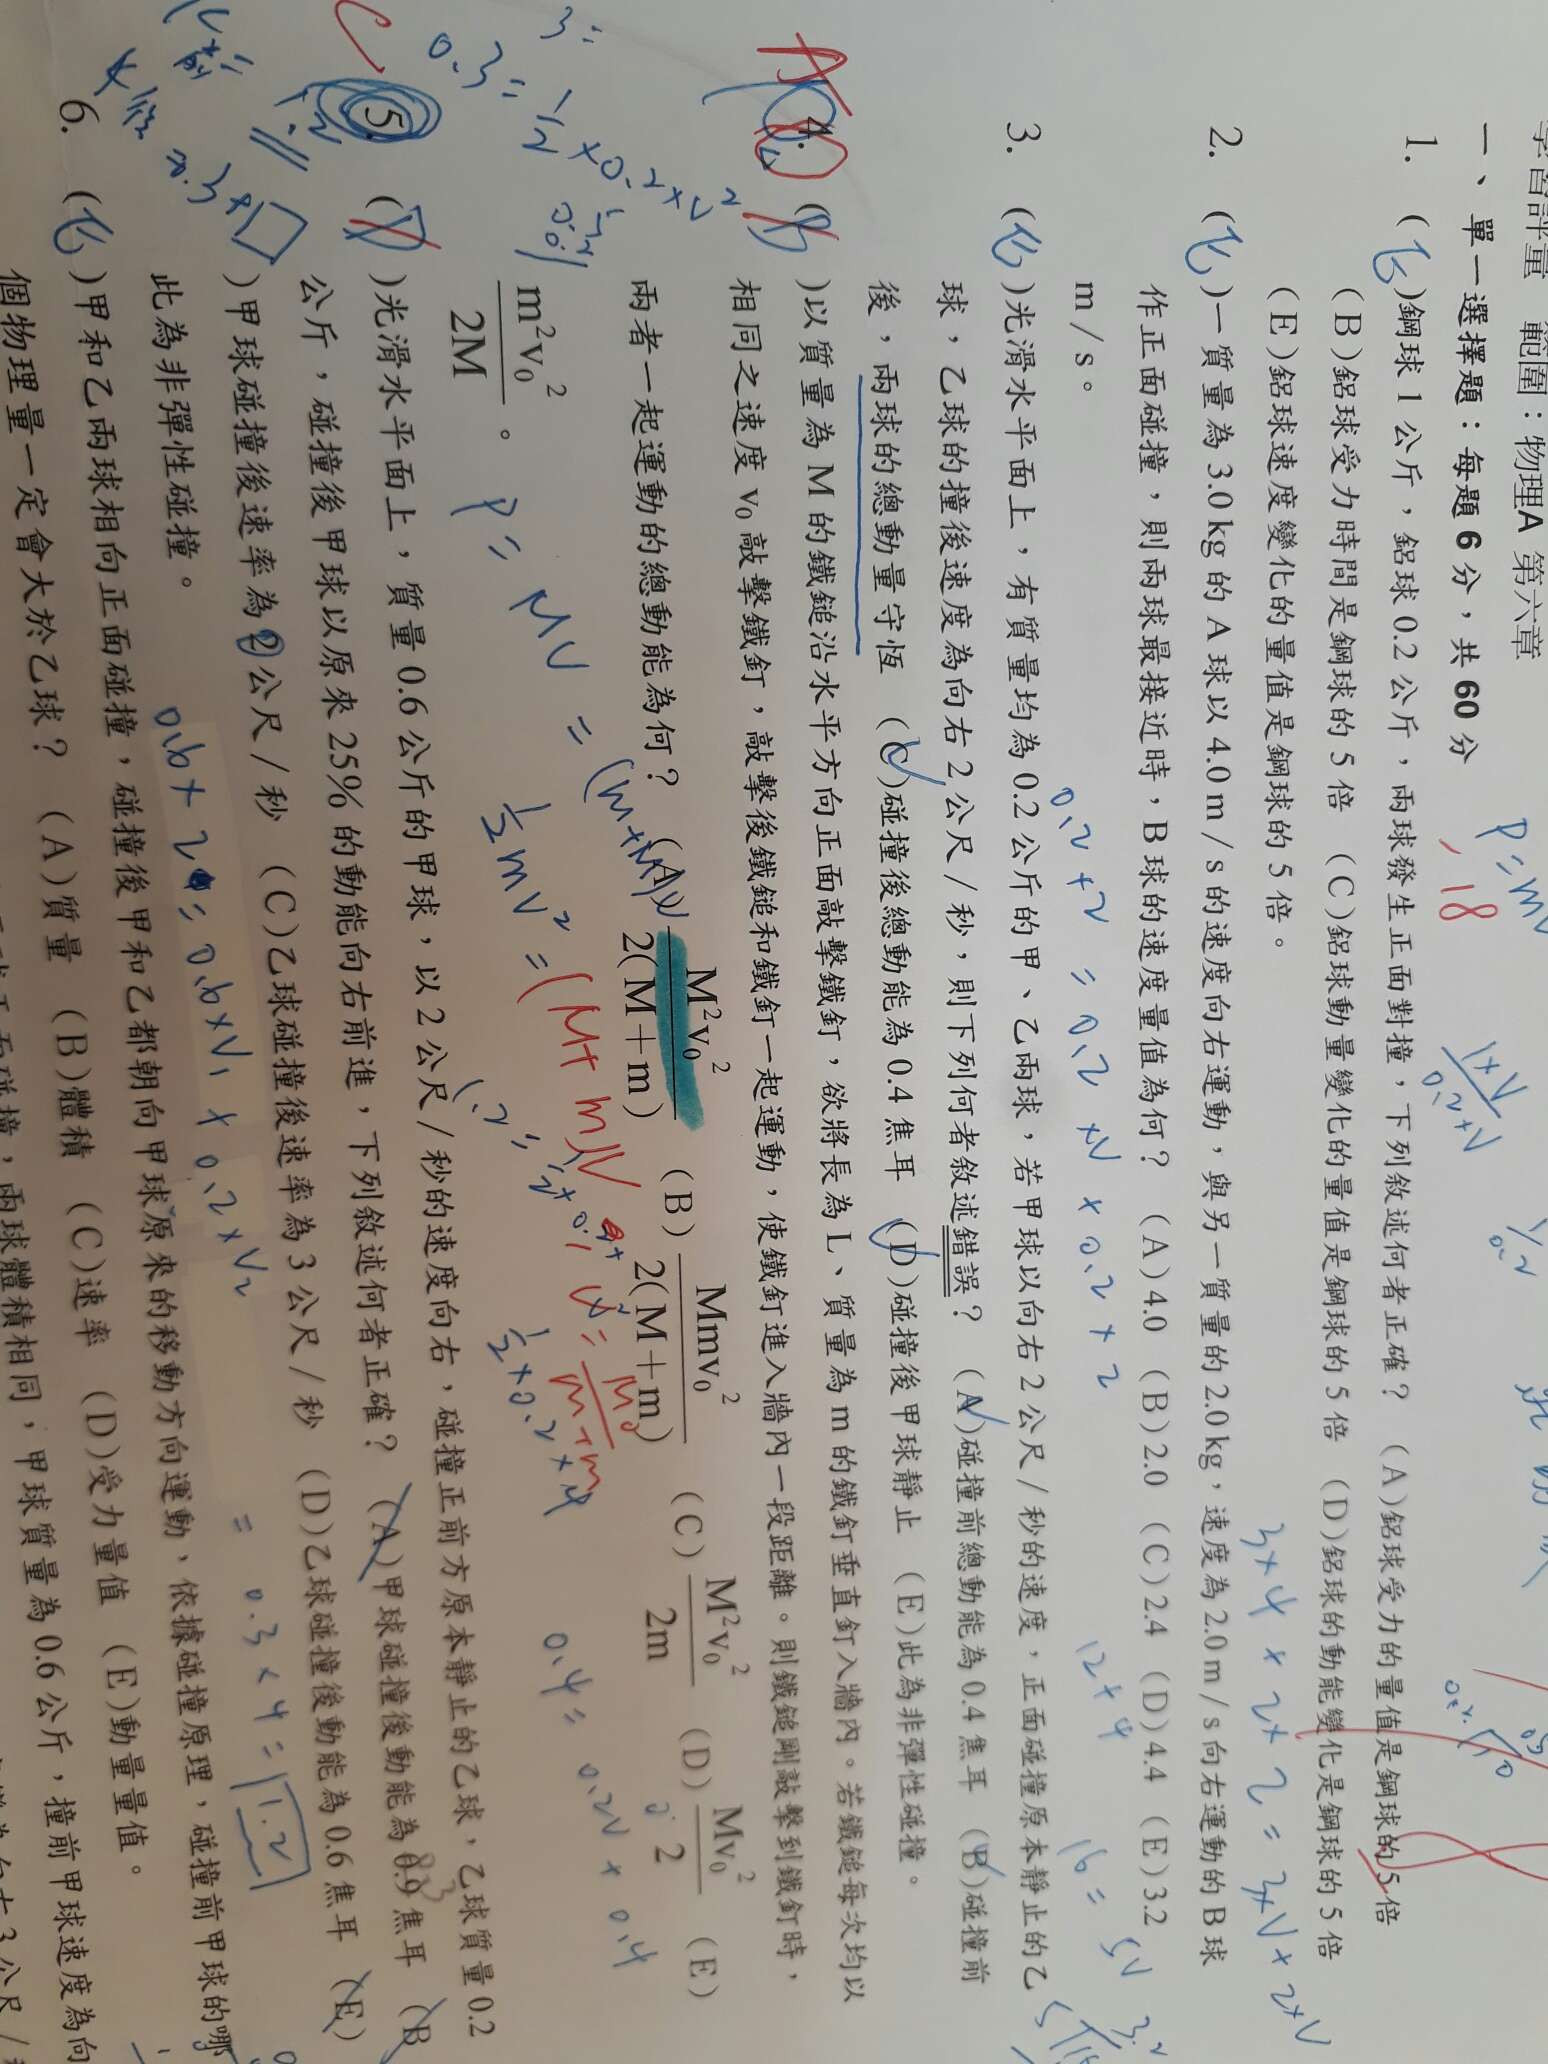 學習評量　範圍：物理A 第六章
一、單一選擇題：每題 6 分，共 60 分
1. (E)鋼球 1 公斤，鋁球 0.2 公斤，兩球發生正面對撞，下列敘述何者正確？　(A)鋁球受力的量值是鋼球的 5 倍
(B)鋁球受力時間是鋼球的 5 倍　(C)鋁球動量變化的量值是鋼球的 5 倍　(D)鋁球的動能變化是鋼球的 5 倍
(E)鋁球速度變化的量值是鋼球的 5 倍。
2. (E)一質量為 3.0 kg 的 A 球以 4.0 m / s 的速度向右運動，與另一質量的 2.0 kg，速度為 2.0 m / s 向右運動的 B 球
作正面碰撞，則兩球最接近時，B 球的速度量值為何？　(A) 4.0　(B) 2.0　(C) 2.4　(D) 4.4　(E) 3.2
m / s。
3. (E)光滑水平面上，有質量均為 0.2 公斤的甲、乙兩球，若甲球以向右 2 公尺 / 秒的速度，正面碰撞原本靜止的乙
球，乙球的撞後速度為向右 2 公尺 / 秒，則下列何者敘述錯誤？　(A)碰撞前總動能為 0.4 焦耳　(B)碰撞前
後，兩球的總動量守恆　(C)碰撞後總動能為 0.4 焦耳　(D)碰撞後甲球靜止　(E)此為非彈性碰撞。
4. ( )以質量為 M 的鐵鎚沿水平方向正面敲擊鐵釘，欲將長為 L、質量為 m 的鐵釘垂直釘入牆內。若鐵鎚每次均以
相同之速度 v₀ 敲擊鐵釘，敲擊後鐵鎚和鐵釘一起運動，使鐵釘進入牆內一段距離。則鐵鎚剛敲擊到鐵釘時，
兩者一起運動的總動能為何？　(A) M²v₀² / 2(M＋m)　(B) Mmv₀² / 2(M＋m)　(C) M²v₀² / 2m　(D) Mv₀² / 2　(E)
m²v₀² / 2M。
5. ( )光滑水平面上，質量 0.6 公斤的甲球，以 2 公尺 / 秒的速度向右，碰撞正前方原本靜止的乙球，乙球質量 0.2
公斤，碰撞後甲球以原來 25% 的動能向右前進，下列敘述何者正確？　(A)甲球碰撞後動能為 0.9 焦耳　(B
)甲球碰撞後速率為 2 公尺 / 秒　(C)乙球碰撞後速率為 3 公尺 / 秒　(D)乙球碰撞後動能為 0.6 焦耳　(E)
此為非彈性碰撞。
6. (E)甲和乙兩球相向正面碰撞，碰撞後甲和乙都朝向甲球原來的移動方向運動，依據碰撞原理，碰撞前甲球的哪
個物理量一定會大於乙球？　(A)質量　(B)體積　(C)速率　(D)受力量值　(E)動量量值。
碰撞，兩球體積相同，甲球質量為 0.6 公斤，撞前甲球速度為向
3 公尺 /
P = mv
18
3×4 + 2×2 = 3×V + 2×V
12+4
16 = 5V
3.2
0.2×2 = 0.2×V + 0.2×2
P = MV = (m+M)V
½mV² = (M+m)V
0.4 = 0.2V + 0.4
½×0.2×4
0.3 = ½×0.2×V²
0.6×2 = 0.6×V₁ + 0.2×V₂
= 0.3×4 = 1.2